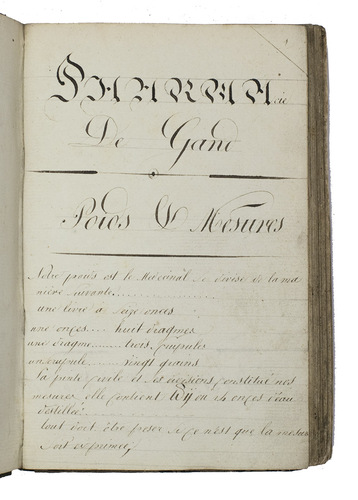 PHARMAcie
De Gand
Poids & Mesures
Notre poids est le Medécinal se divise de la ma
niere suivante
une livre a seize onces
une onces.... huit dragmes
une dragme...... trois scrupules
un scrupule...... vingt grains
La pinte civile et ses divisions constitue nos
mesures elle contient ou 14 onces d'eau
distillée.
tout doit être peser si ce n'est que la mesure
soit exprimée,